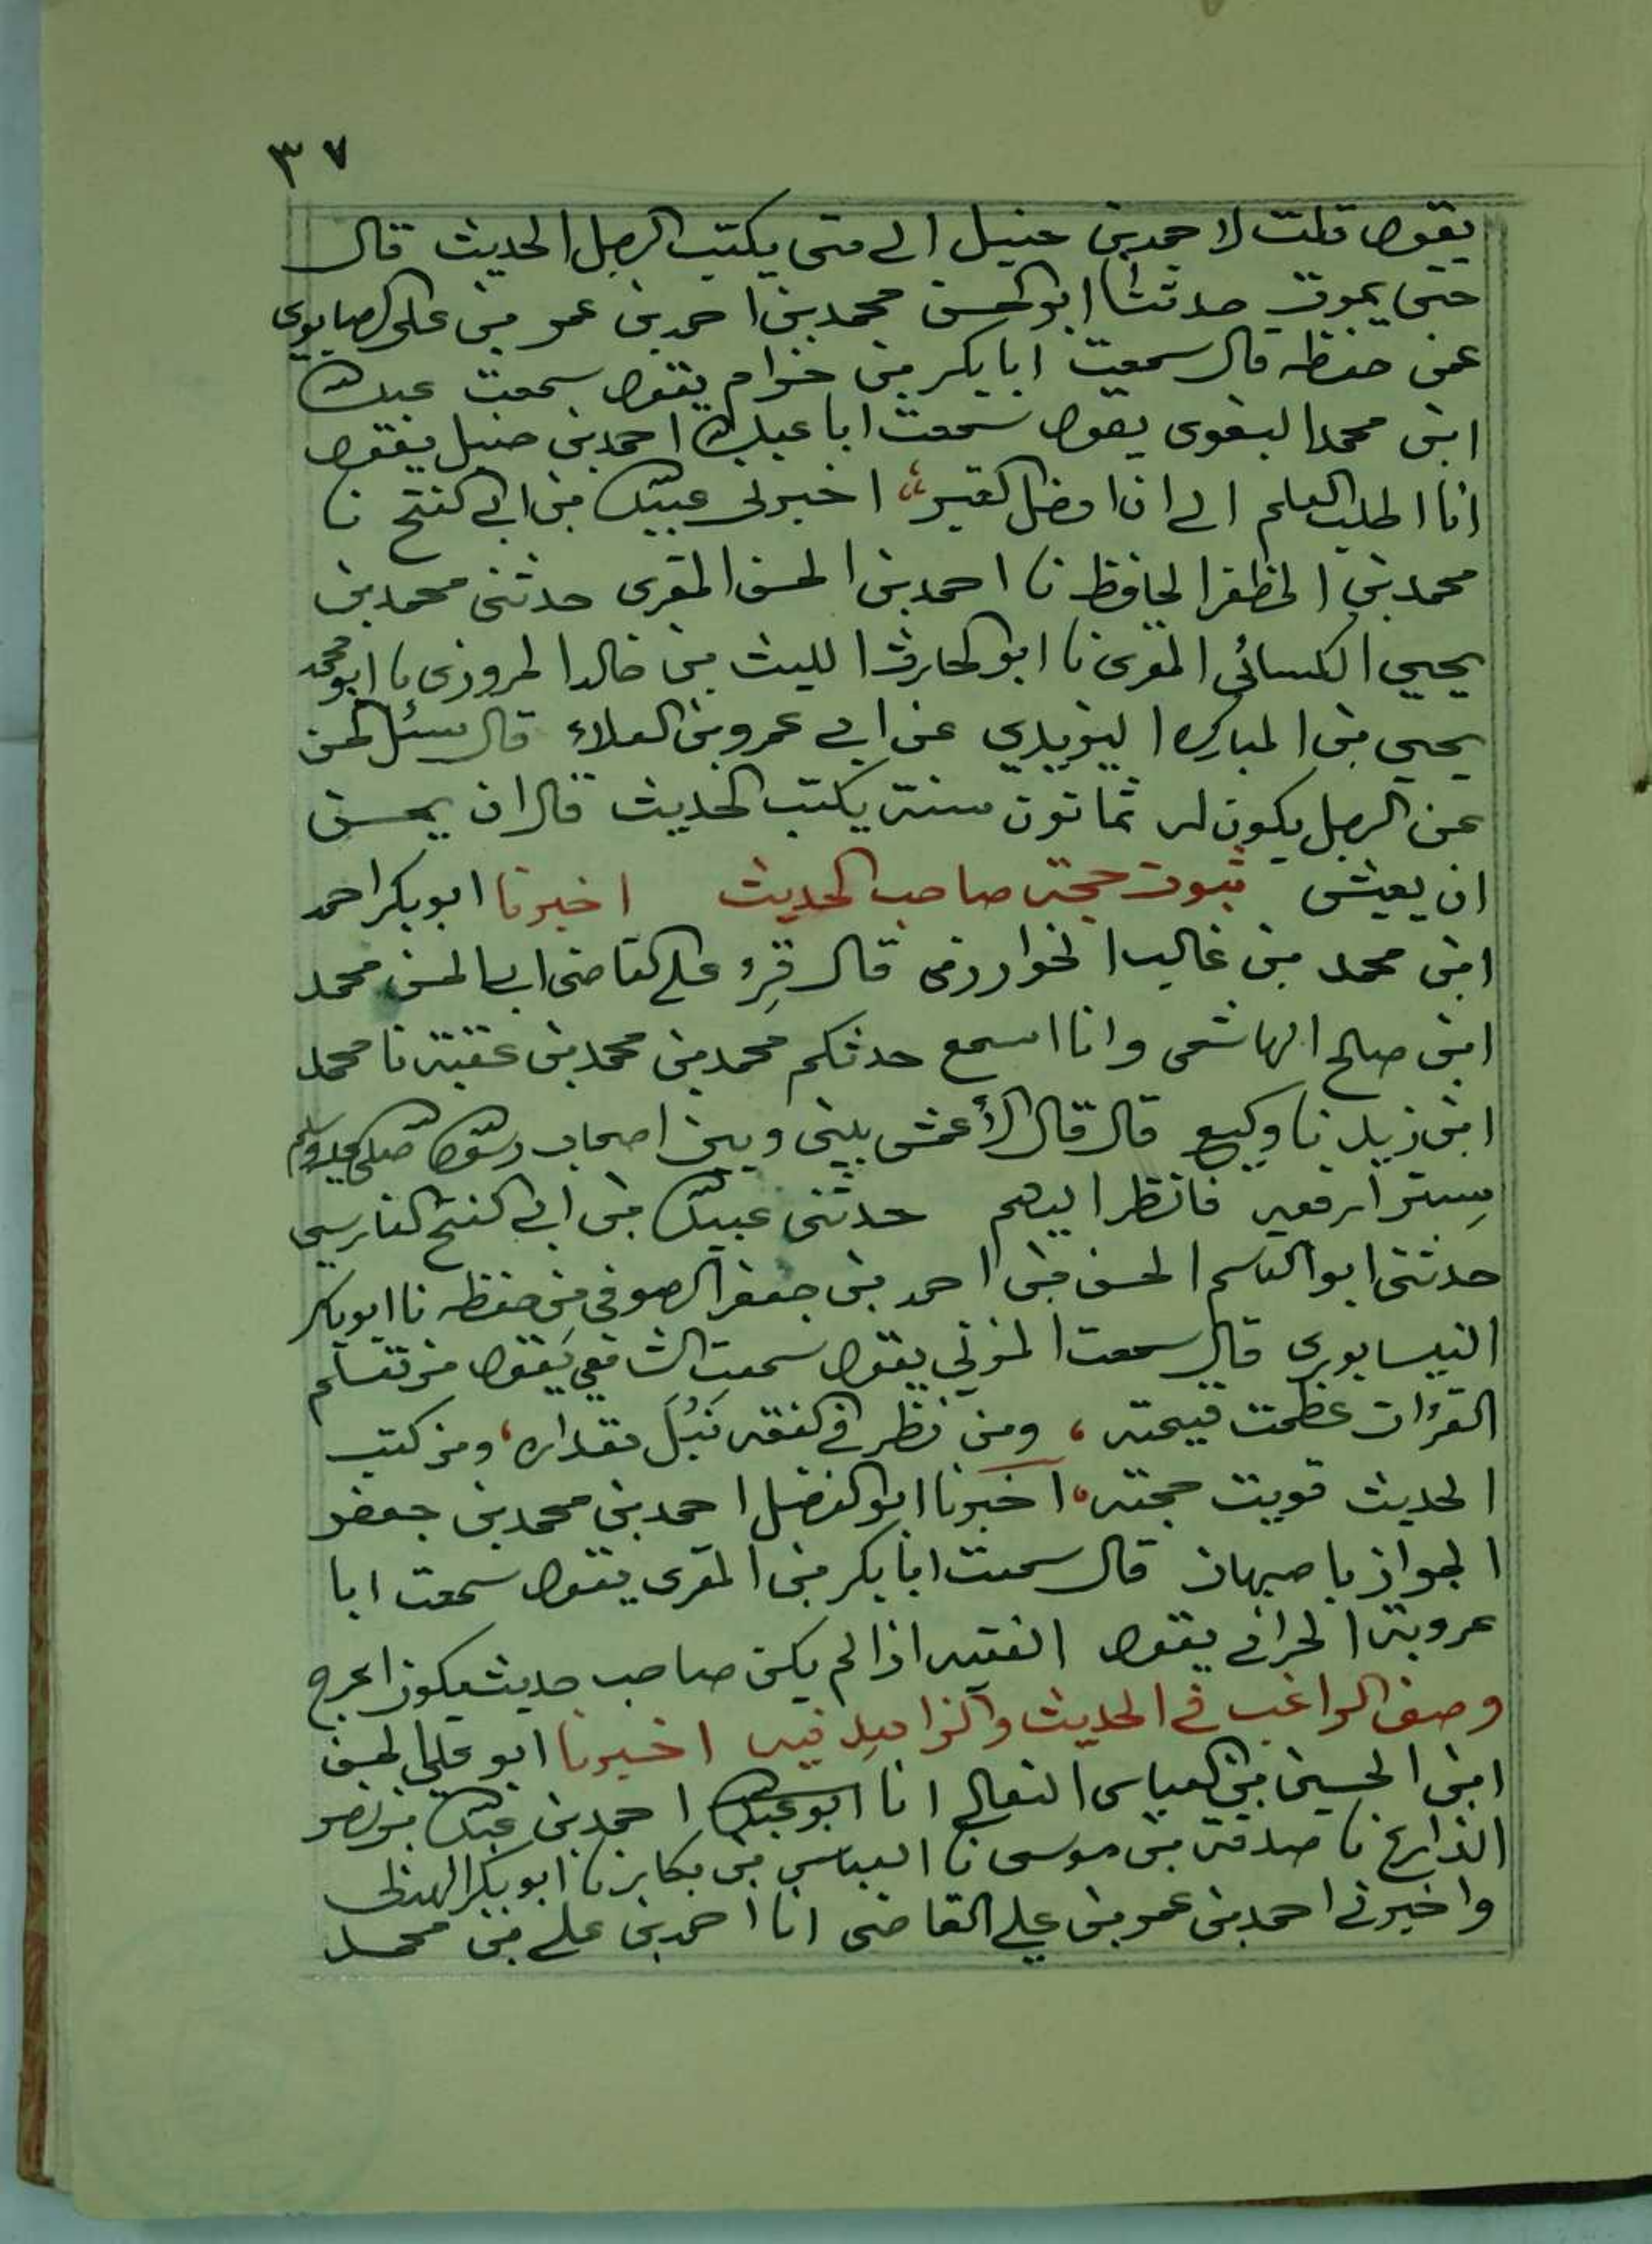 ٣٧
يقول قلت لاحمد بن حنبل الى متى يكتب الرجل الحديث قال
حتى يموت حدثنا ابو الحسن محمد بن احمد بن عمر بن على الصابونى
من حفظه قال سمعت ابا بكر بن خزام يقول سمعت عبد الله
ابن محمد البغوى يقول سمعت ابا عبد الله احمد بن حنبل يقول
انا اطلب العلم الى ان ادخل القبر، اخبرنى عبيد الله بن ابى الفتح نا
محمد بن المظفر الحافظ نا احمد بن الحسن المقرى حدثنى محمد بن
يحيى الكسائي المقرى نا ابو الحارث الليث بن خالد المروزى نا ابو محمد
يحيى بن المبارك اليزيدي عن ابى عمرو بن العلاء قال سئل الحسن
عن الرجل يكون له ثمانون سنة يكتب الحديث قال ان يحسن
ان يعيش ثبوت حجة صاحب الحديث اخبرنا ابو بكر احمد
ابن محمد بن غالب الخوارزمى قال قرئ على القاضى ابى الحسن محمد
ابن صالح الهاشمى وانا اسمع حدثكم محمد بن محمد بن عقبة نا محمد
ابن زيد نا وكيع قال قال الأعمش بينى وبين اصحاب رسول الله صلى الله عليه وسلم
ستر ارفعه فانظر اليهم حدثنى عبيد الله بن ابى الفتح الفارسي
حدثنى ابو القاسم الحسن بن احمد بن جعفر الصوفي من حفظه نا ابو بكر
النيسابورى قال سمعت المزني يقول سمعت الشافعي يقول من تعلم
القرءان عظمت قيمته، ومن نظر في الفقه نَبُلَ مقداره، ومن كتب
الحديث قويت حجته، اخبرنا ابو الفضل احمد بن محمد بن جعفر
الجواز باصبهان قال سمعت ابا بكر بن المقرى يقول سمعت ابا
عروبة الحرانى يقول الفقيه اذا لم يكن صاحب حديث يكون اعرج
وصف الراغب في الحديث والزاهد فيه اخبرنا ابو علي الحسن
ابن الحسين بن العباس النعالى انا ابو عبد الله احمد بن عبد الله بن نصر
الذارع نا صدقة بن موسى نا العباس بن بكار نا ابو بكر الهذلى
واخبرنى احمد بن عمر بن على القاضى انا احمد بن على بن محمد